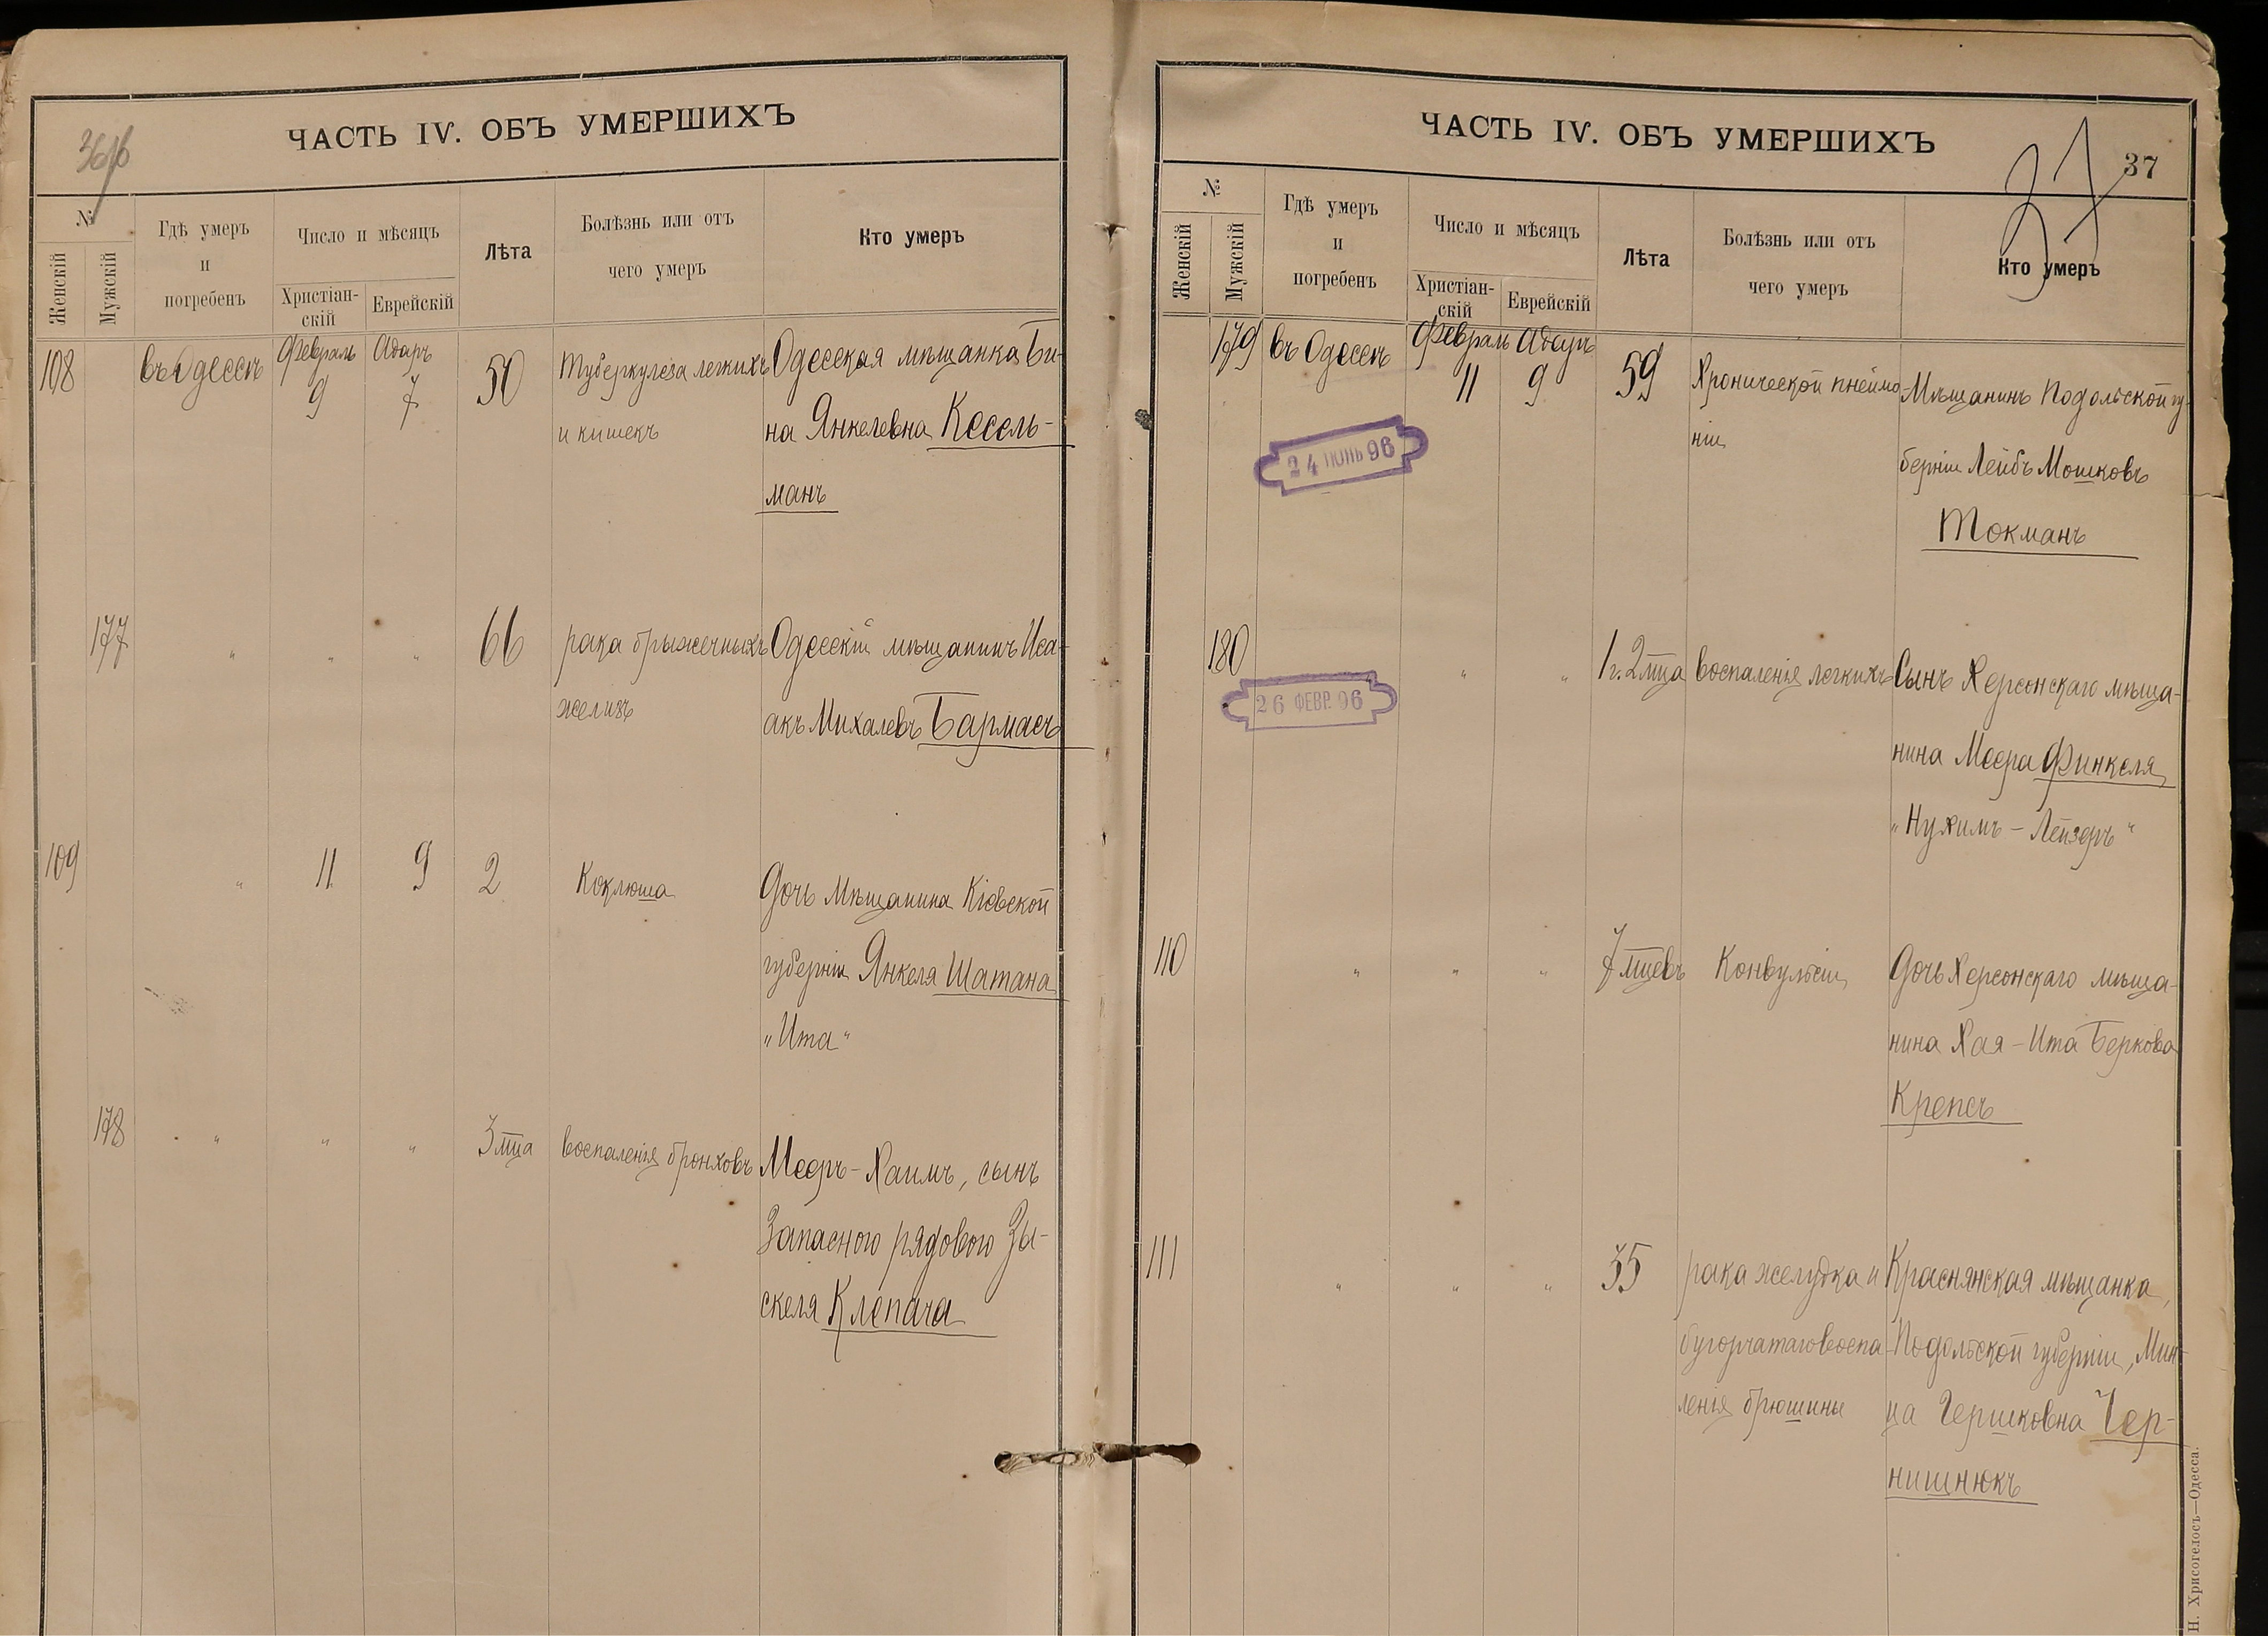 36об
ЧАСТЬ IV. ОБЪ УМЕРШИХЪ
№
Женскій
Мужскій
Гдѣ умеръ
и
погребенъ
Число и мѣсяцъ
Христіан-
скій
Еврейскій
Лѣта
Болѣзнь или отъ
чего умеръ
Кто умеръ
108 въ Одессѣ Февраль Адаръ 50 Туберкулеза легкихъ Одесская мѣщанка Би-
9 7 и кишекъ на Янкелевна Кесель-
манъ
177 " " " 66 рака брыжечныхъ Одесскій мѣщанинъ Иса-
желизъ акъ Михалевъ Бармасъ
109 " 11 9 2 Коклюша Дочь мѣщанина Кіевской
губерніи Янкеля Шатана
"Ита"
178 " " " 3 мца воспаленія бронховъ Мееръ-Хаимъ, сынъ
Запасного рядового Зы-
скеля Клепача
ЧАСТЬ IV. ОБЪ УМЕРШИХЪ
37
37
№
Женскій
Мужскій
Гдѣ умеръ
и
погребенъ
Число и мѣсяцъ
Христіан-
скій
Еврейскій
Лѣта
Болѣзнь или отъ
чего умеръ
Кто умеръ
179 въ Одессѣ Февраль Адаръ 59 Хронической пнеймо- Мѣщанинъ Подольской гу-
11 9 ніи берніи Лейбъ Мошковъ
24 ІЮНЬ 96
Токманъ
180 " " 1 г. 2 мца воспаленія легкихъ Сынъ Херсонскаго мѣща-
26 ФЕВР. 96
нина Меера Финкеля
"Нухимъ-Лейзеръ"
110 " " " 7 мцевъ Конвульсіи Дочь Херсонскаго мѣща-
нина Хая-Ита Беркова
Крепсъ
111 " " " 35 рака желудка и Краснянская мѣщанка,
бугорчатаго воспа- Подольской губерніи, Мин-
ленія брюшины ца Гершковна Чер-
нишнюкъ
Н. Хрисогелосъ—Одесса.